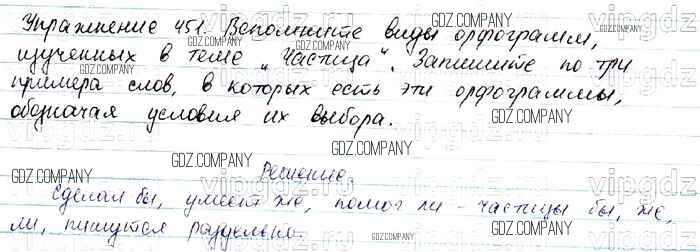 Упражнение 451. Вспомните виды орфограмм,
GDZ.COMPANY GDZ.COMPANY
изученных в теме „Частица“. Запишите по три
примера слов, в которых есть эти орфограммы,
GDZ.COMPANY GDZ.COMPANY
обозначая условия их выбора.
GDZ.COMPANY GDZ.COMPANY
Решение.
GDZ.COMPANY GDZ.COMPANY
Сделал бы, умеет же, помог ли - частицы бы, же,
ли, пишутся раздельно.
GDZ.COMPANY